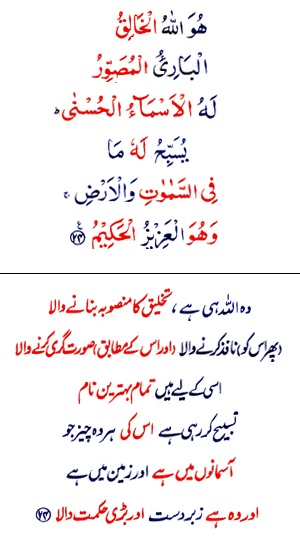 هُوَ اللّٰهُ الْخَالِقُ
الْبَارِئُ الْمُصَوِّرُ
لَهُ الْاَسْمَآءُ الْحُسْنٰى ؕ
يُسَبِّحُ لَهٗ مَا
فِى السَّمٰوٰتِ وَالْاَرْضِ ۚ
وَهُوَ الْعَزِيْزُ الْحَكِيْمُ ﴿۲۴﴾
وہ اللہ ہی ہے، تخلیق کا منصوبہ بنانے والا
(پھر اس کو) نافذ کرنے والا (اور اس کے مطابق) صورت گری کرنے والا
اسی کے لیے ہیں تمام بہترین نام
تسبیح کر رہی ہے اس کی ہر وہ چیز جو
آسمانوں میں ہے اور زمین میں ہے
اور وہ ہے زبردست اور بڑی حکمت والا ﴿۲۴﴾